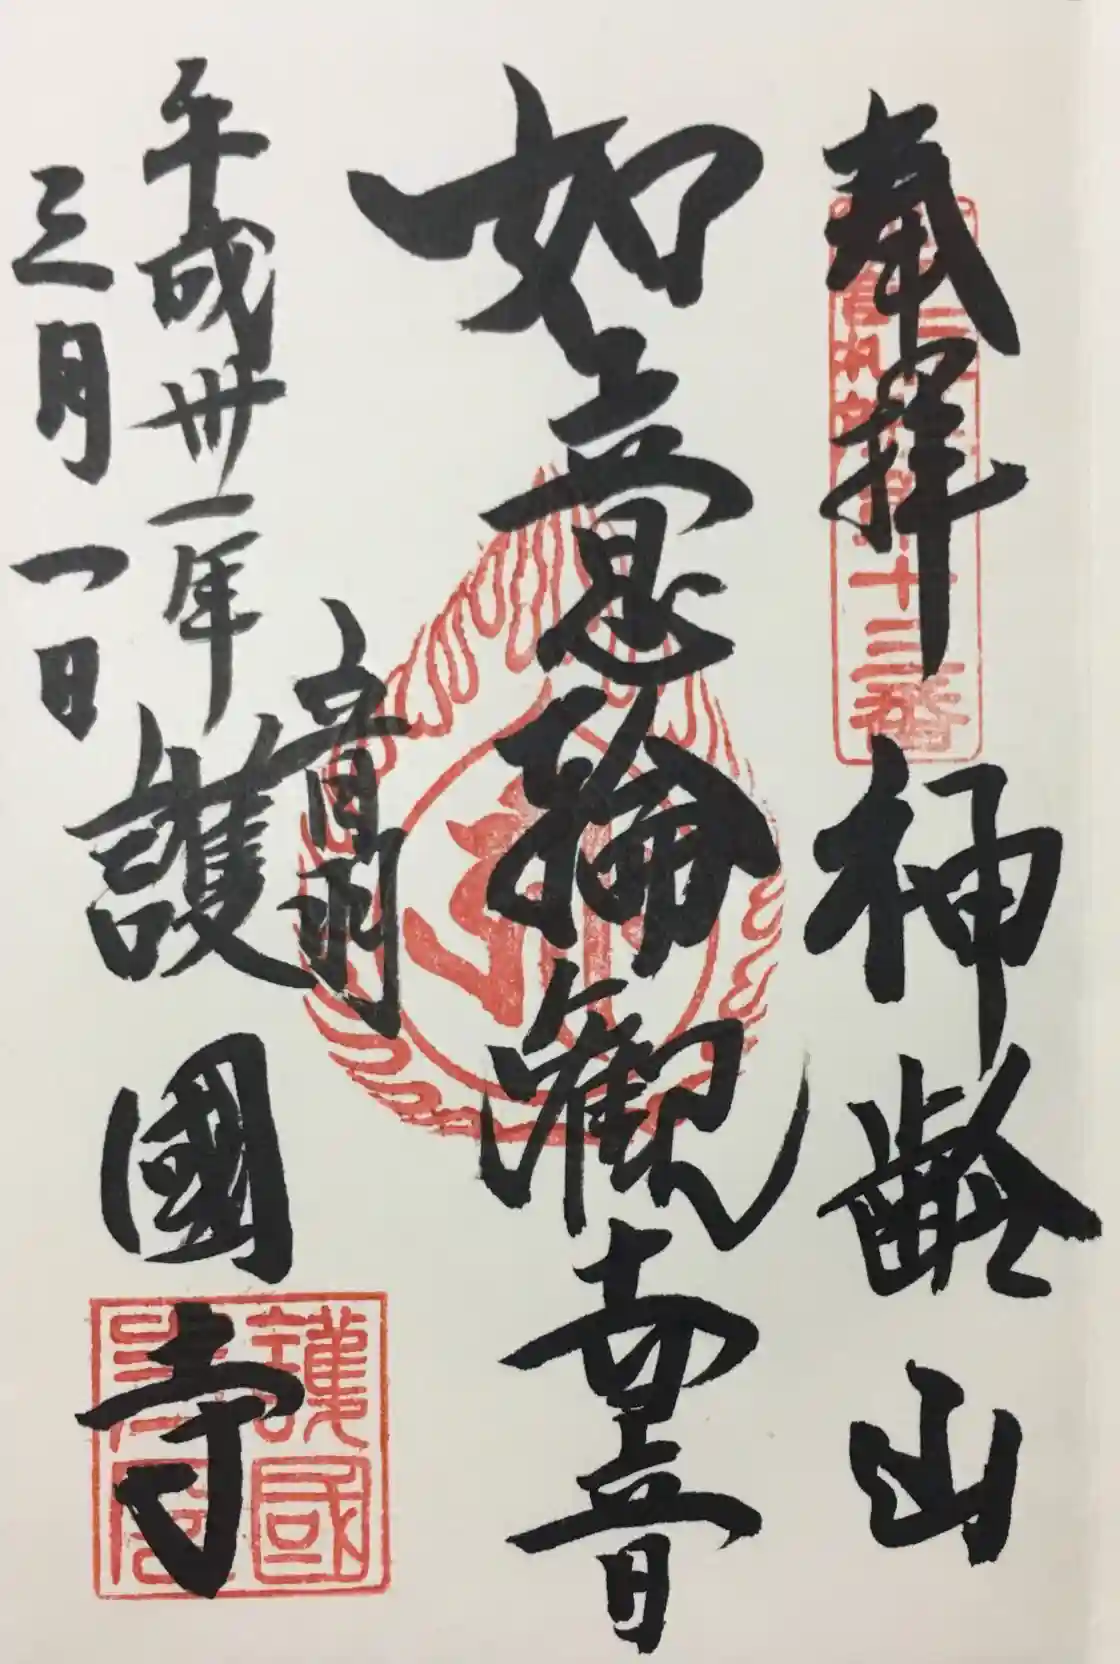 奉拝
神齢山
十三番
如意輪觀世音
音羽
護國寺
平成卅一年
三月一日
護國